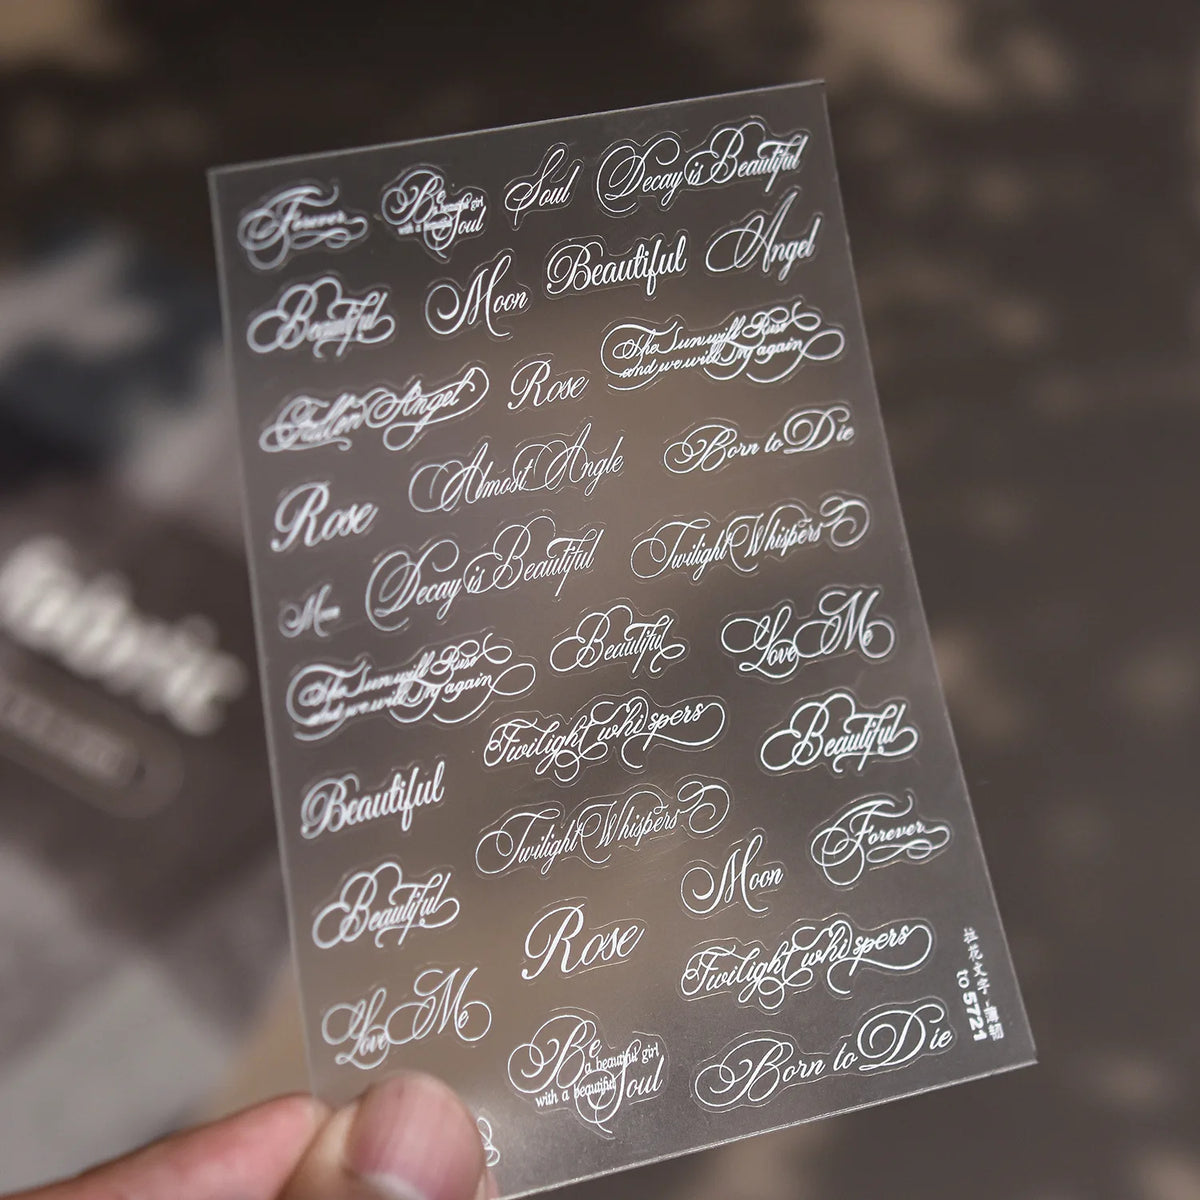 Forever
Be
a beautiful girl
with a beautiful
Soul
Soul
Decay is Beautiful
Beautiful
Moon
Beautiful
Angel
Fallen Angel
Rose
The Sun will Rise
and we will Try again
Rose
Almost Angle
Born to Die
Moon
Decay is Beautiful
Twilight Whispers
The Sun will Rise
and we will Try again
Beautiful
Love Me
Beautiful
Twilight whispers
Beautiful
Beautiful
Twilight Whispers
Moon
Forever
Love Me
Rose
Twilight whispers
Be
a beautiful girl
with a beautiful
Soul
Born to Die
拉花文字-薄韧
to 5721